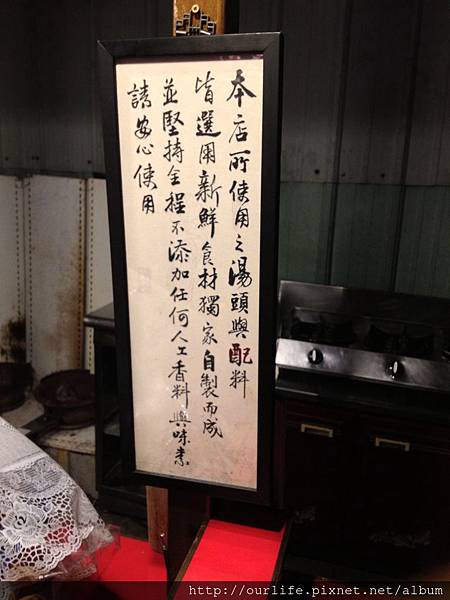 本店所使用之湯頭與配料
皆選用新鮮食材獨家自製而成
並堅持全程不添加任何人工香料與味素
請安心使用
http://ourlife.pixnet.net/album